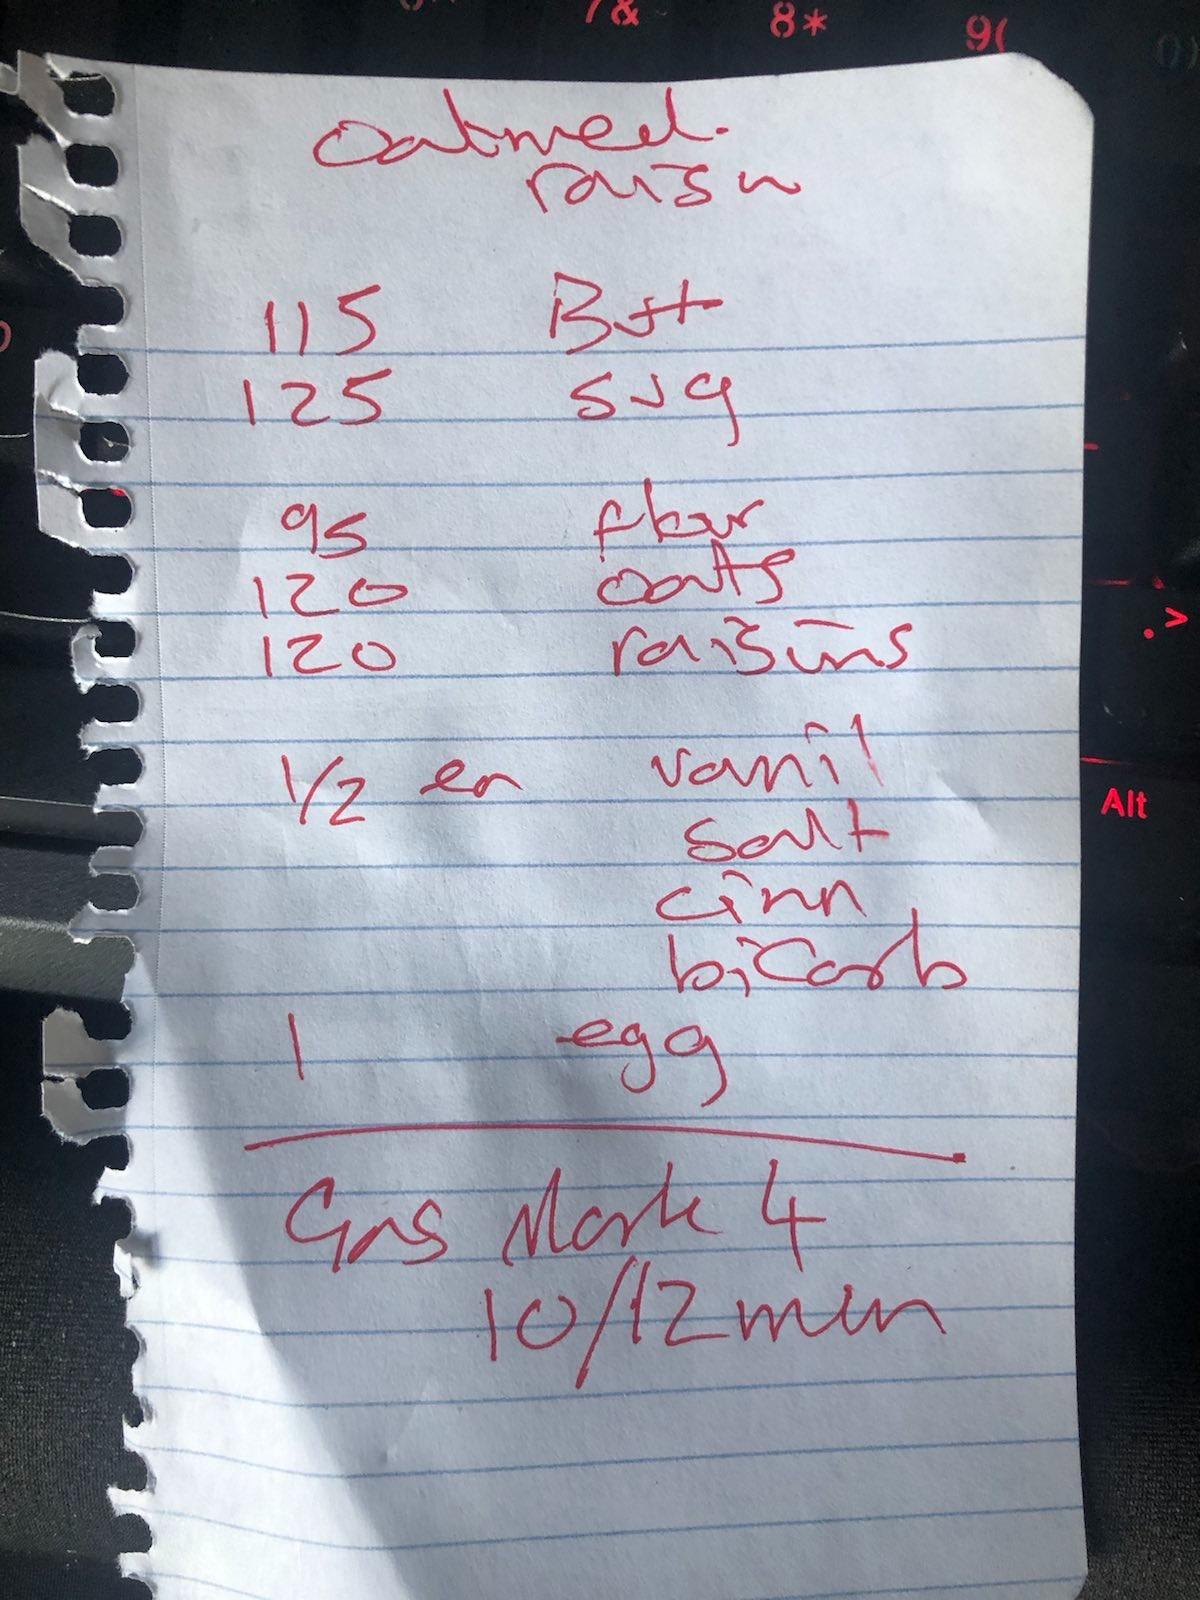 7&
8*
9(
0)
oatmeal.
raisin
115 Butt
125 sug
95 flour
120 oats
120 raisins
1/2 ea vanil
salt
cinn
bicarb
1 egg
Gas Mark 4
10/12 min
. >
Alt